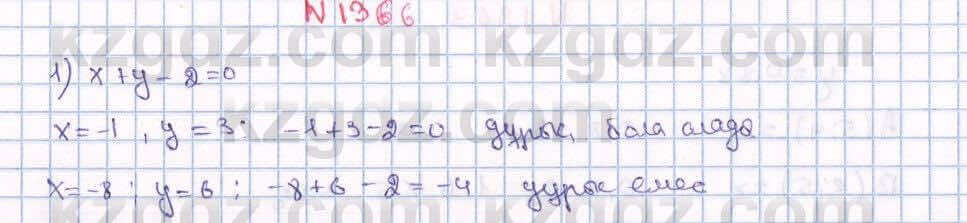 N 1366
1) x + y - 2 = 0
x = -1 , y = 3; -1 + 3 - 2 = 0 дұрыс, бола алады
x = -8 ; y = 6 ; -8 + 6 - 2 = -4 дұрыс емес
kzgdz.com kzgdz.com
kzgdz.com
kzgdz.com kzgdz.com